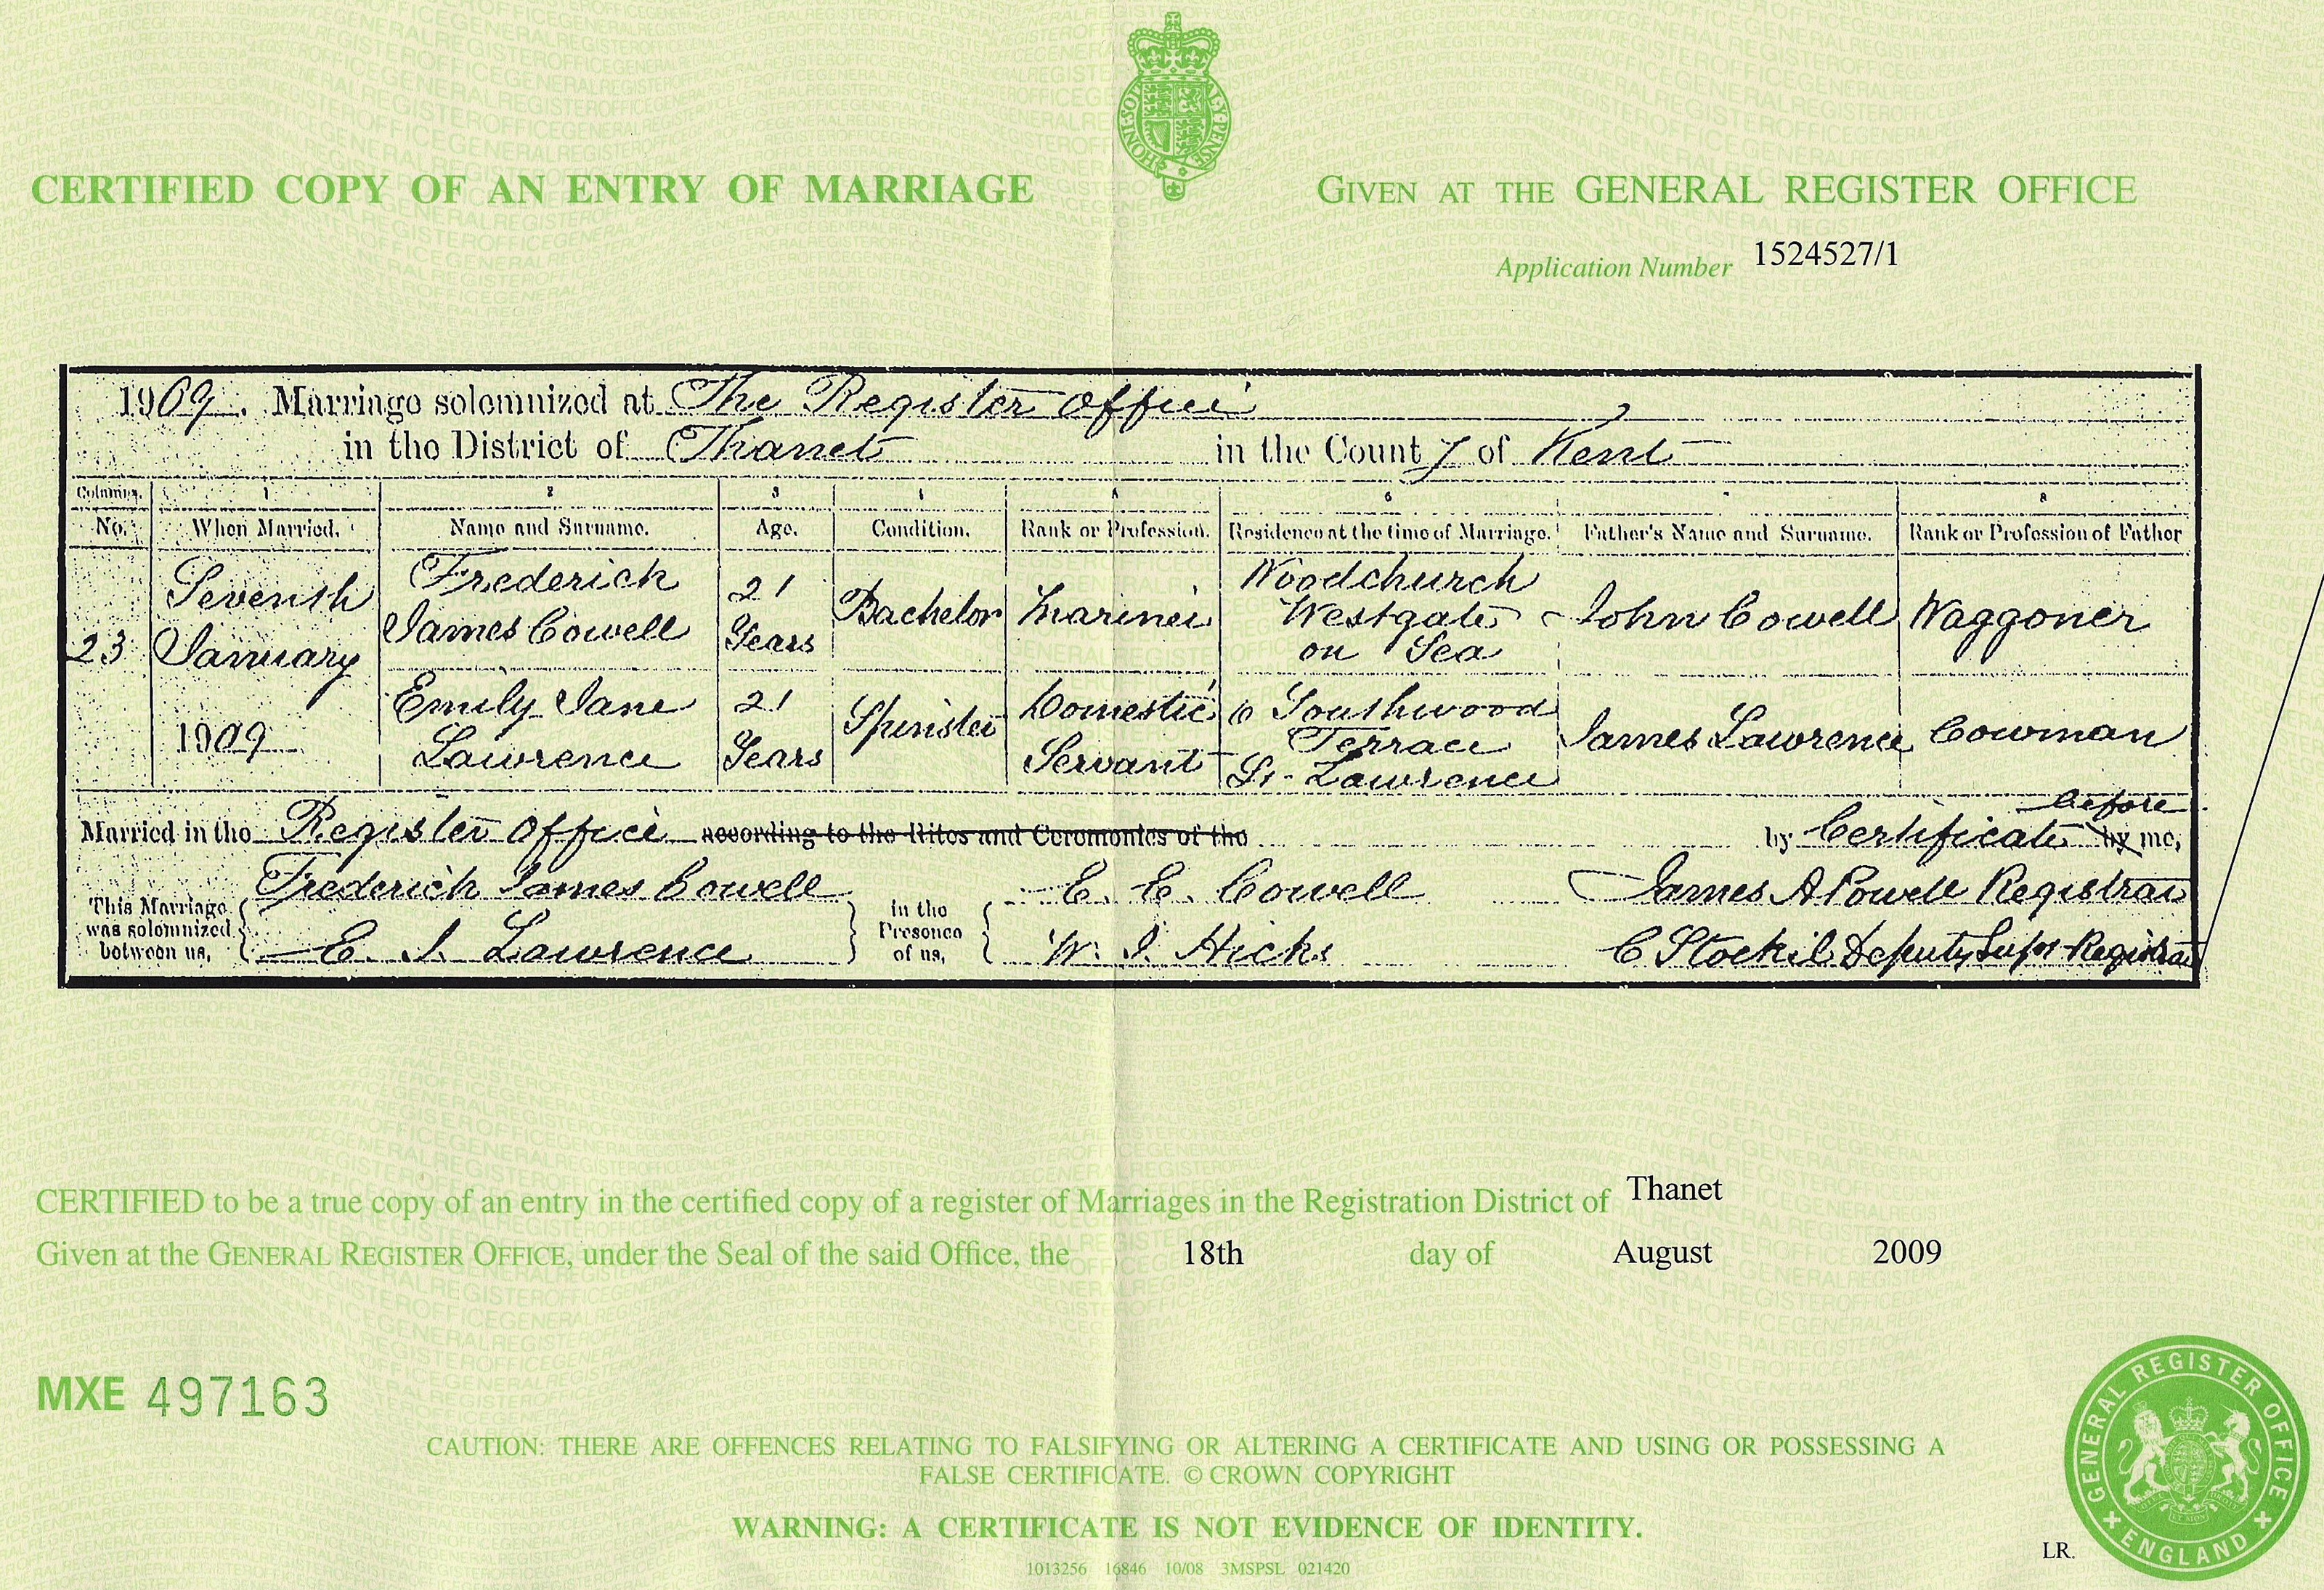 CERTIFIED COPY OF AN ENTRY OF MARRIAGE
GIVEN AT THE GENERAL REGISTER OFFICE
Application Number 1524527/1
1909. Marriage solemnized at The Register Office
in the District of Thanet in the County of Kent
Columns. 1 2 3 4 5 6 7 8
No. When Married. Name and Surname. Age. Condition. Rank or Profession. Residence at the time of Marriage. Father's Name and Surname. Rank or Profession of Father
23 Seventh January 1909 Frederick James Cowell 21 Years Bachelor Mariner Woodchurch Westgate on Sea John Cowell Waggoner
Emily Jane Lawrence 21 Years Spinster Domestic Servant 6 Southwood Terrace St. Lawrence James Lawrence Cowman
Married in the Register Office according to the Rites and Ceremonies of the by Certificate before by me,
This Marriage was solemnized between us, Frederick James Cowell
E. J. Lawrence
in the Presence of us, E. E. Cowell
W. J. Hicks
James A Powell Registrar
C Stockil Deputy Supt Registrar
CERTIFIED to be a true copy of an entry in the certified copy of a register of Marriages in the Registration District of Thanet
Given at the GENERAL REGISTER OFFICE, under the Seal of the said Office, the 18th day of August 2009
MXE 497163
CAUTION: THERE ARE OFFENCES RELATING TO FALSIFYING OR ALTERING A CERTIFICATE AND USING OR POSSESSING A
FALSE CERTIFICATE. © CROWN COPYRIGHT
WARNING: A CERTIFICATE IS NOT EVIDENCE OF IDENTITY.
1013256 16846 10/08 3MSPSL 021420
LR.
GENERAL REGISTER OFFICE
ENGLAND